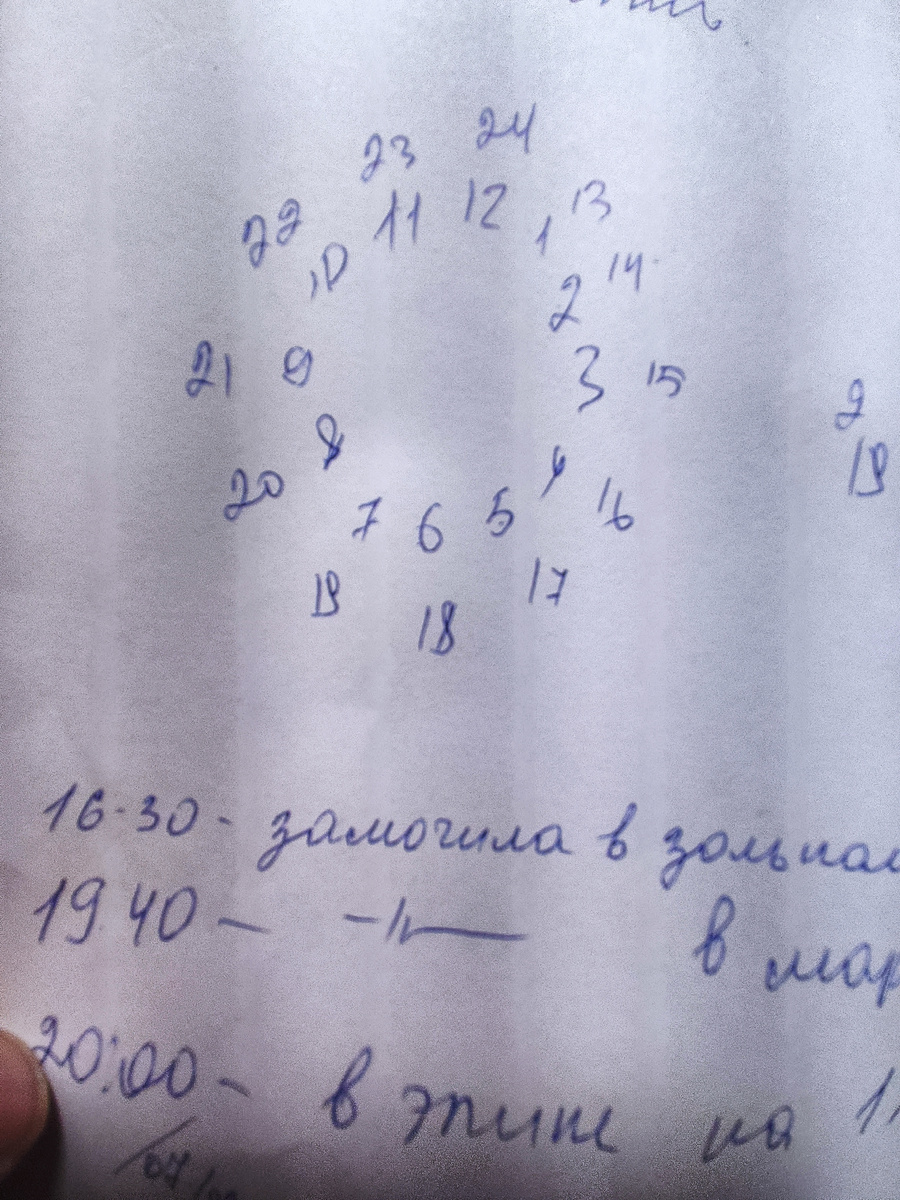 24
23
22 11 12 1 13
10 2 14
21 9 3 15
8 4 9
20 7 6 5 16 19
19 18 17
16-30 - замочила в
19.40 — —〃— в
20:00 - в эпине на